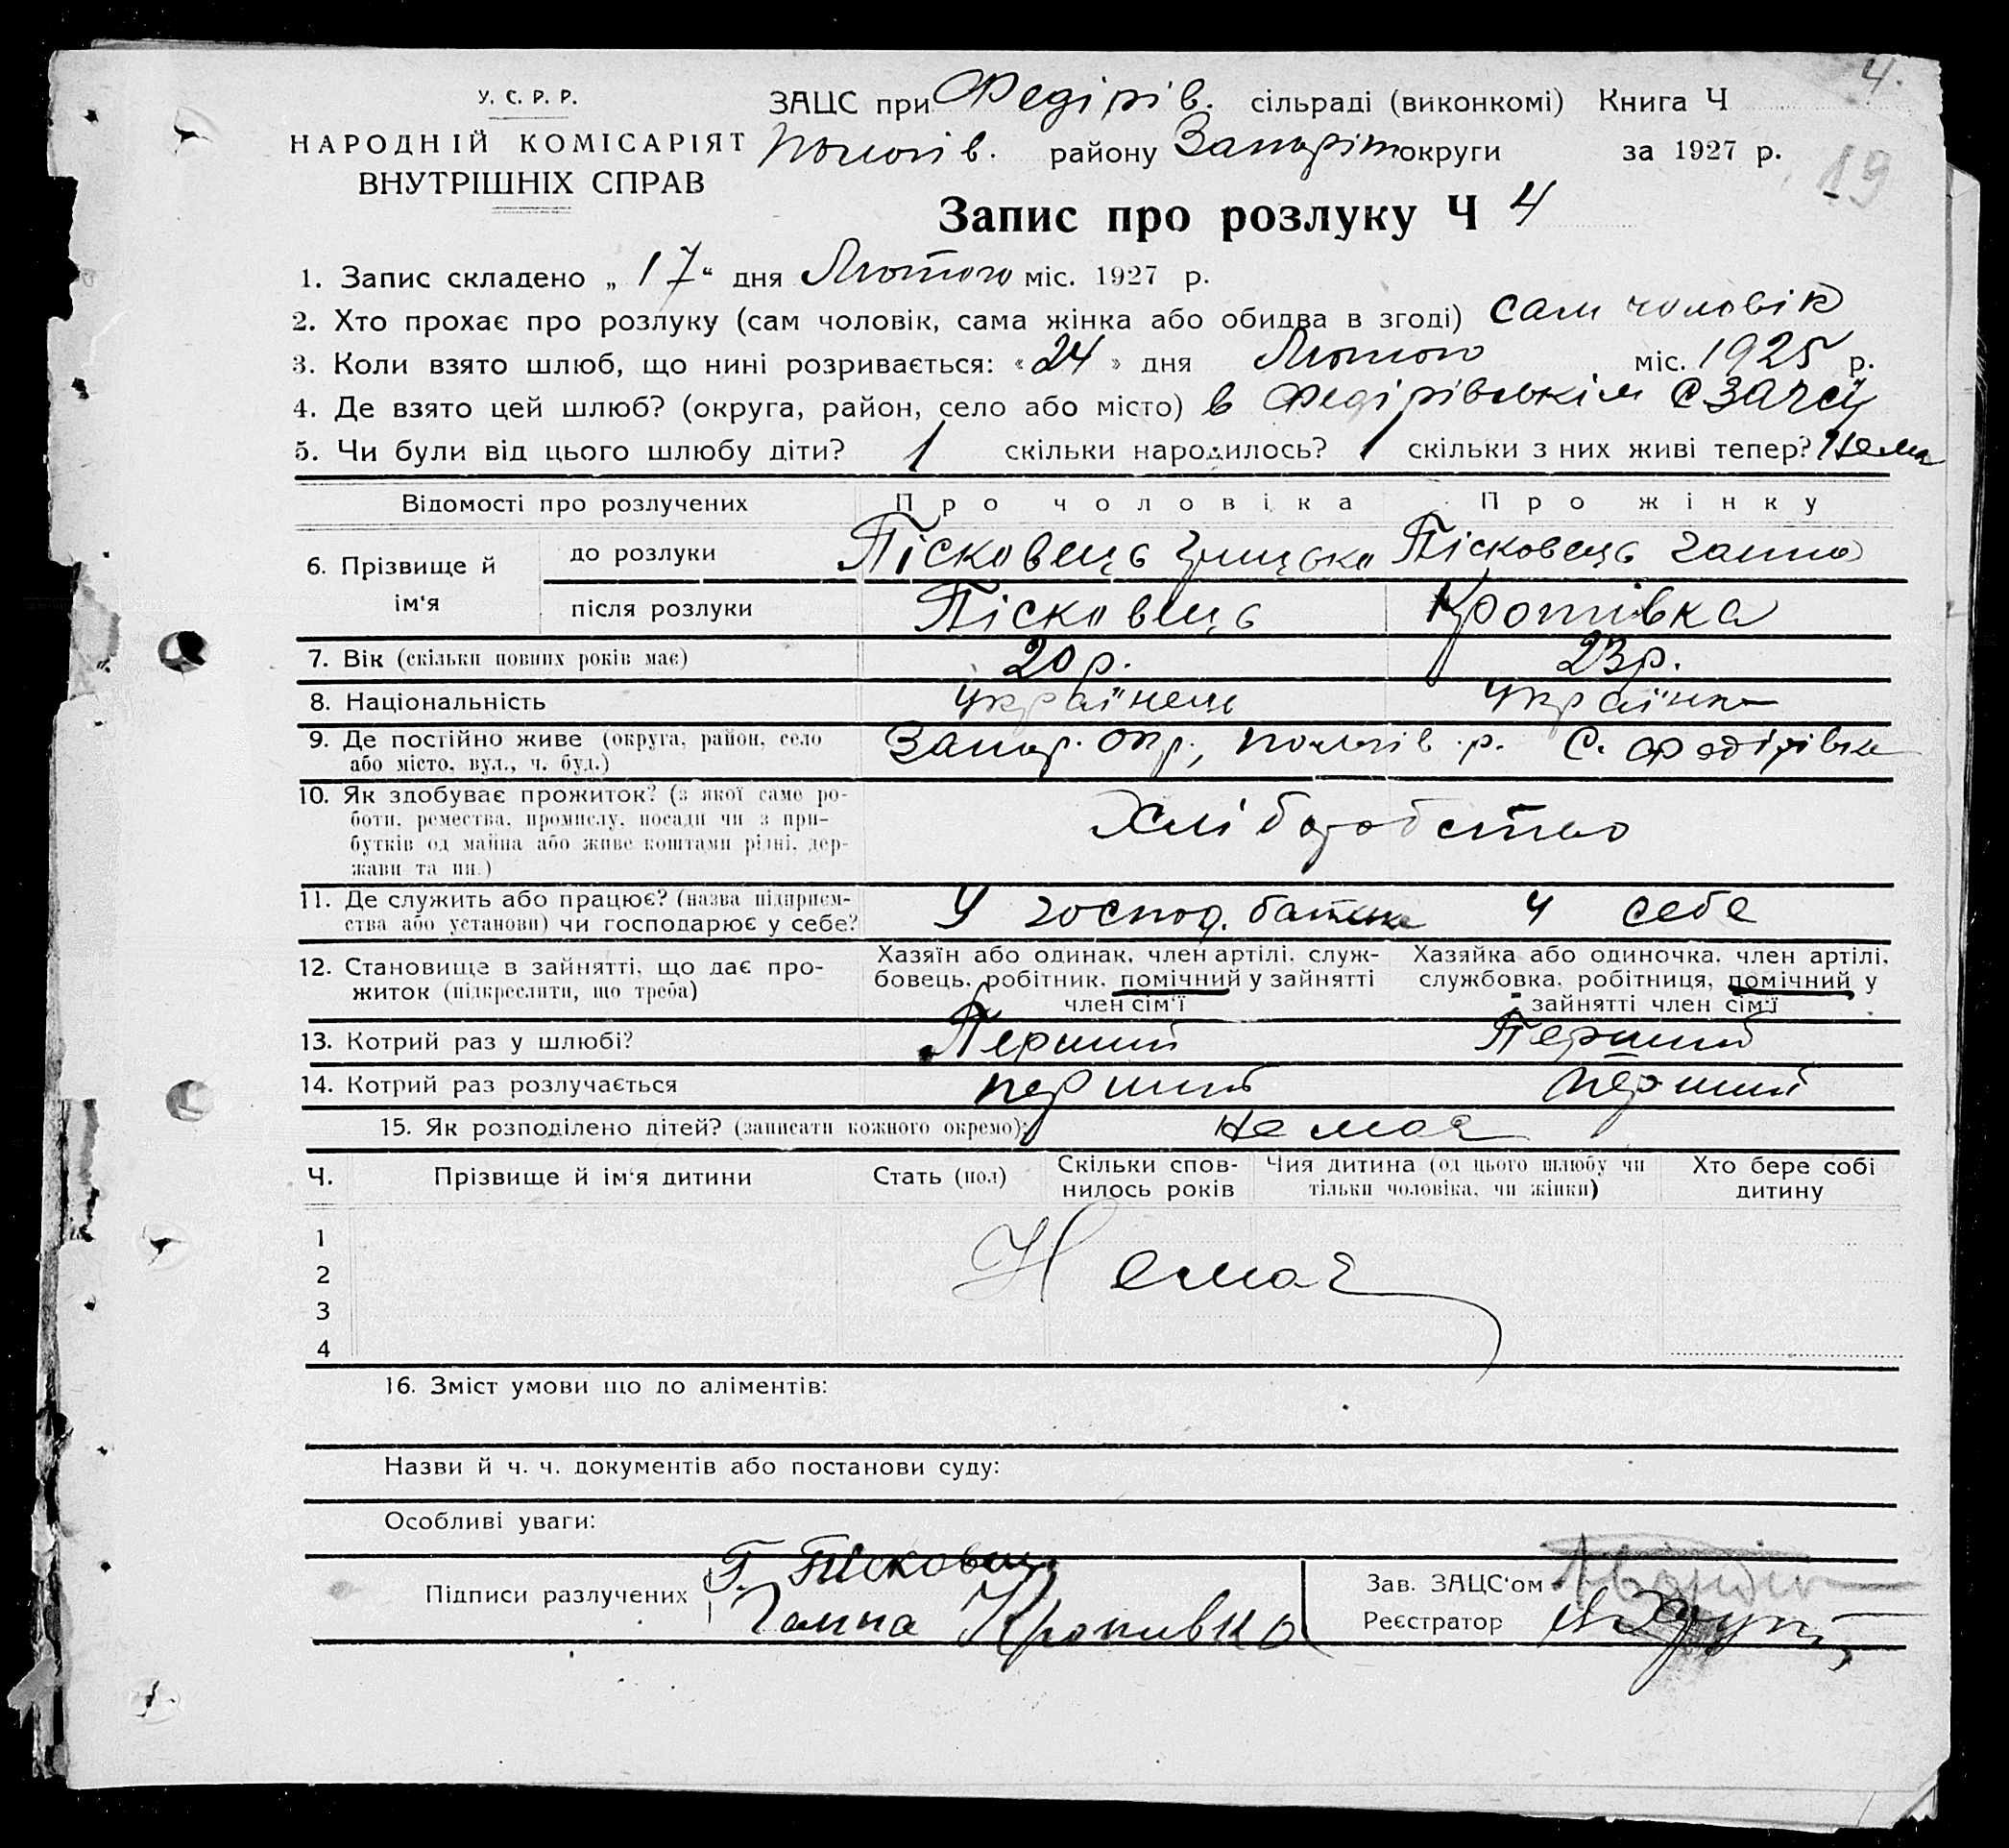 4.
У. С. Р. Р.
НАРОДНІЙ КОМІСАРІЯТ
ВНУТРІШНІХ СПРАВ
ЗАЦС при Федірів. сільраді (виконкомі) Книга Ч
Пологів. району Запоріж округи за 1927 р.
19
Запис про розлуку Ч 4
1. Запис складено „ 17 “ дня Лютого міс. 1927 р.
2. Хто прохає про розлуку (сам чоловік, сама жінка або обидва в згоді) сам чоловік
3. Коли взято шлюб, що нині розривається: « 24 » дня Лютого міс. 1925 р.
4. Де взято цей шлюб? (округа, район, село або місто) в Федірівськім
5. Чи були від цього шлюбу діти? 1 скільки народилось? 1 скільки з них живі тепер? Нема
Відомості про розлучених Про чоловіка Про жінку
6. Прізвище й ім'я до розлуки Пісковець Грицько Пісковець Ганна
після розлуки Пісковець Кропивка
7. Вік (скільки повних років має) 20 р. 23 р.
8. Національність Українець Українка
9. Де постійно живе (округа, район, село Запор. Окр., Пологів. р. С. Федірівка
або місто, вул., ч. буд.)
10. Як здобуває прожиток? (з якої саме ро-
боти, ремества, промислу, посади чи з при-
бутків од майна або живе коштами рідні, дер-
жави та ин.)
Хліборобство
11. Де служить або працює? (назва підприєм-
ства або установи) чи господарює у себе?
У господ. батька У себе
12. Становище в зайнятті, що дає про-
житок (підкреслити, що треба)
Хазяїн або одинак, член артілі, служ-
бовець, робітник, помічний у зайнятті
член сім'ї
Хазяйка або одиночка, член артілі,
службовка, робітниця, помічний у
зайнятті член сім'ї
13. Котрий раз у шлюбі? Перший Перший
14. Котрий раз розлучається перший перший
15. Як розподілено дітей? (записати кожного окремо): Немає
Ч. Прізвище й ім'я дитини Стать (пол) Скільки спов-
нилось років Чия дитина (од цього шлюбу чи
тільки чоловіка, чи жінки) Хто бере собі
дитину
1
2
3
4
Немає
16. Зміст умови що до аліментів:
Назви й ч. ч. документів або постанови суду:
Особливі уваги:
Підписи разлучених Г. Пісковець
Ганна Кропивка
Зав. ЗАЦС'ом
Реєстратор